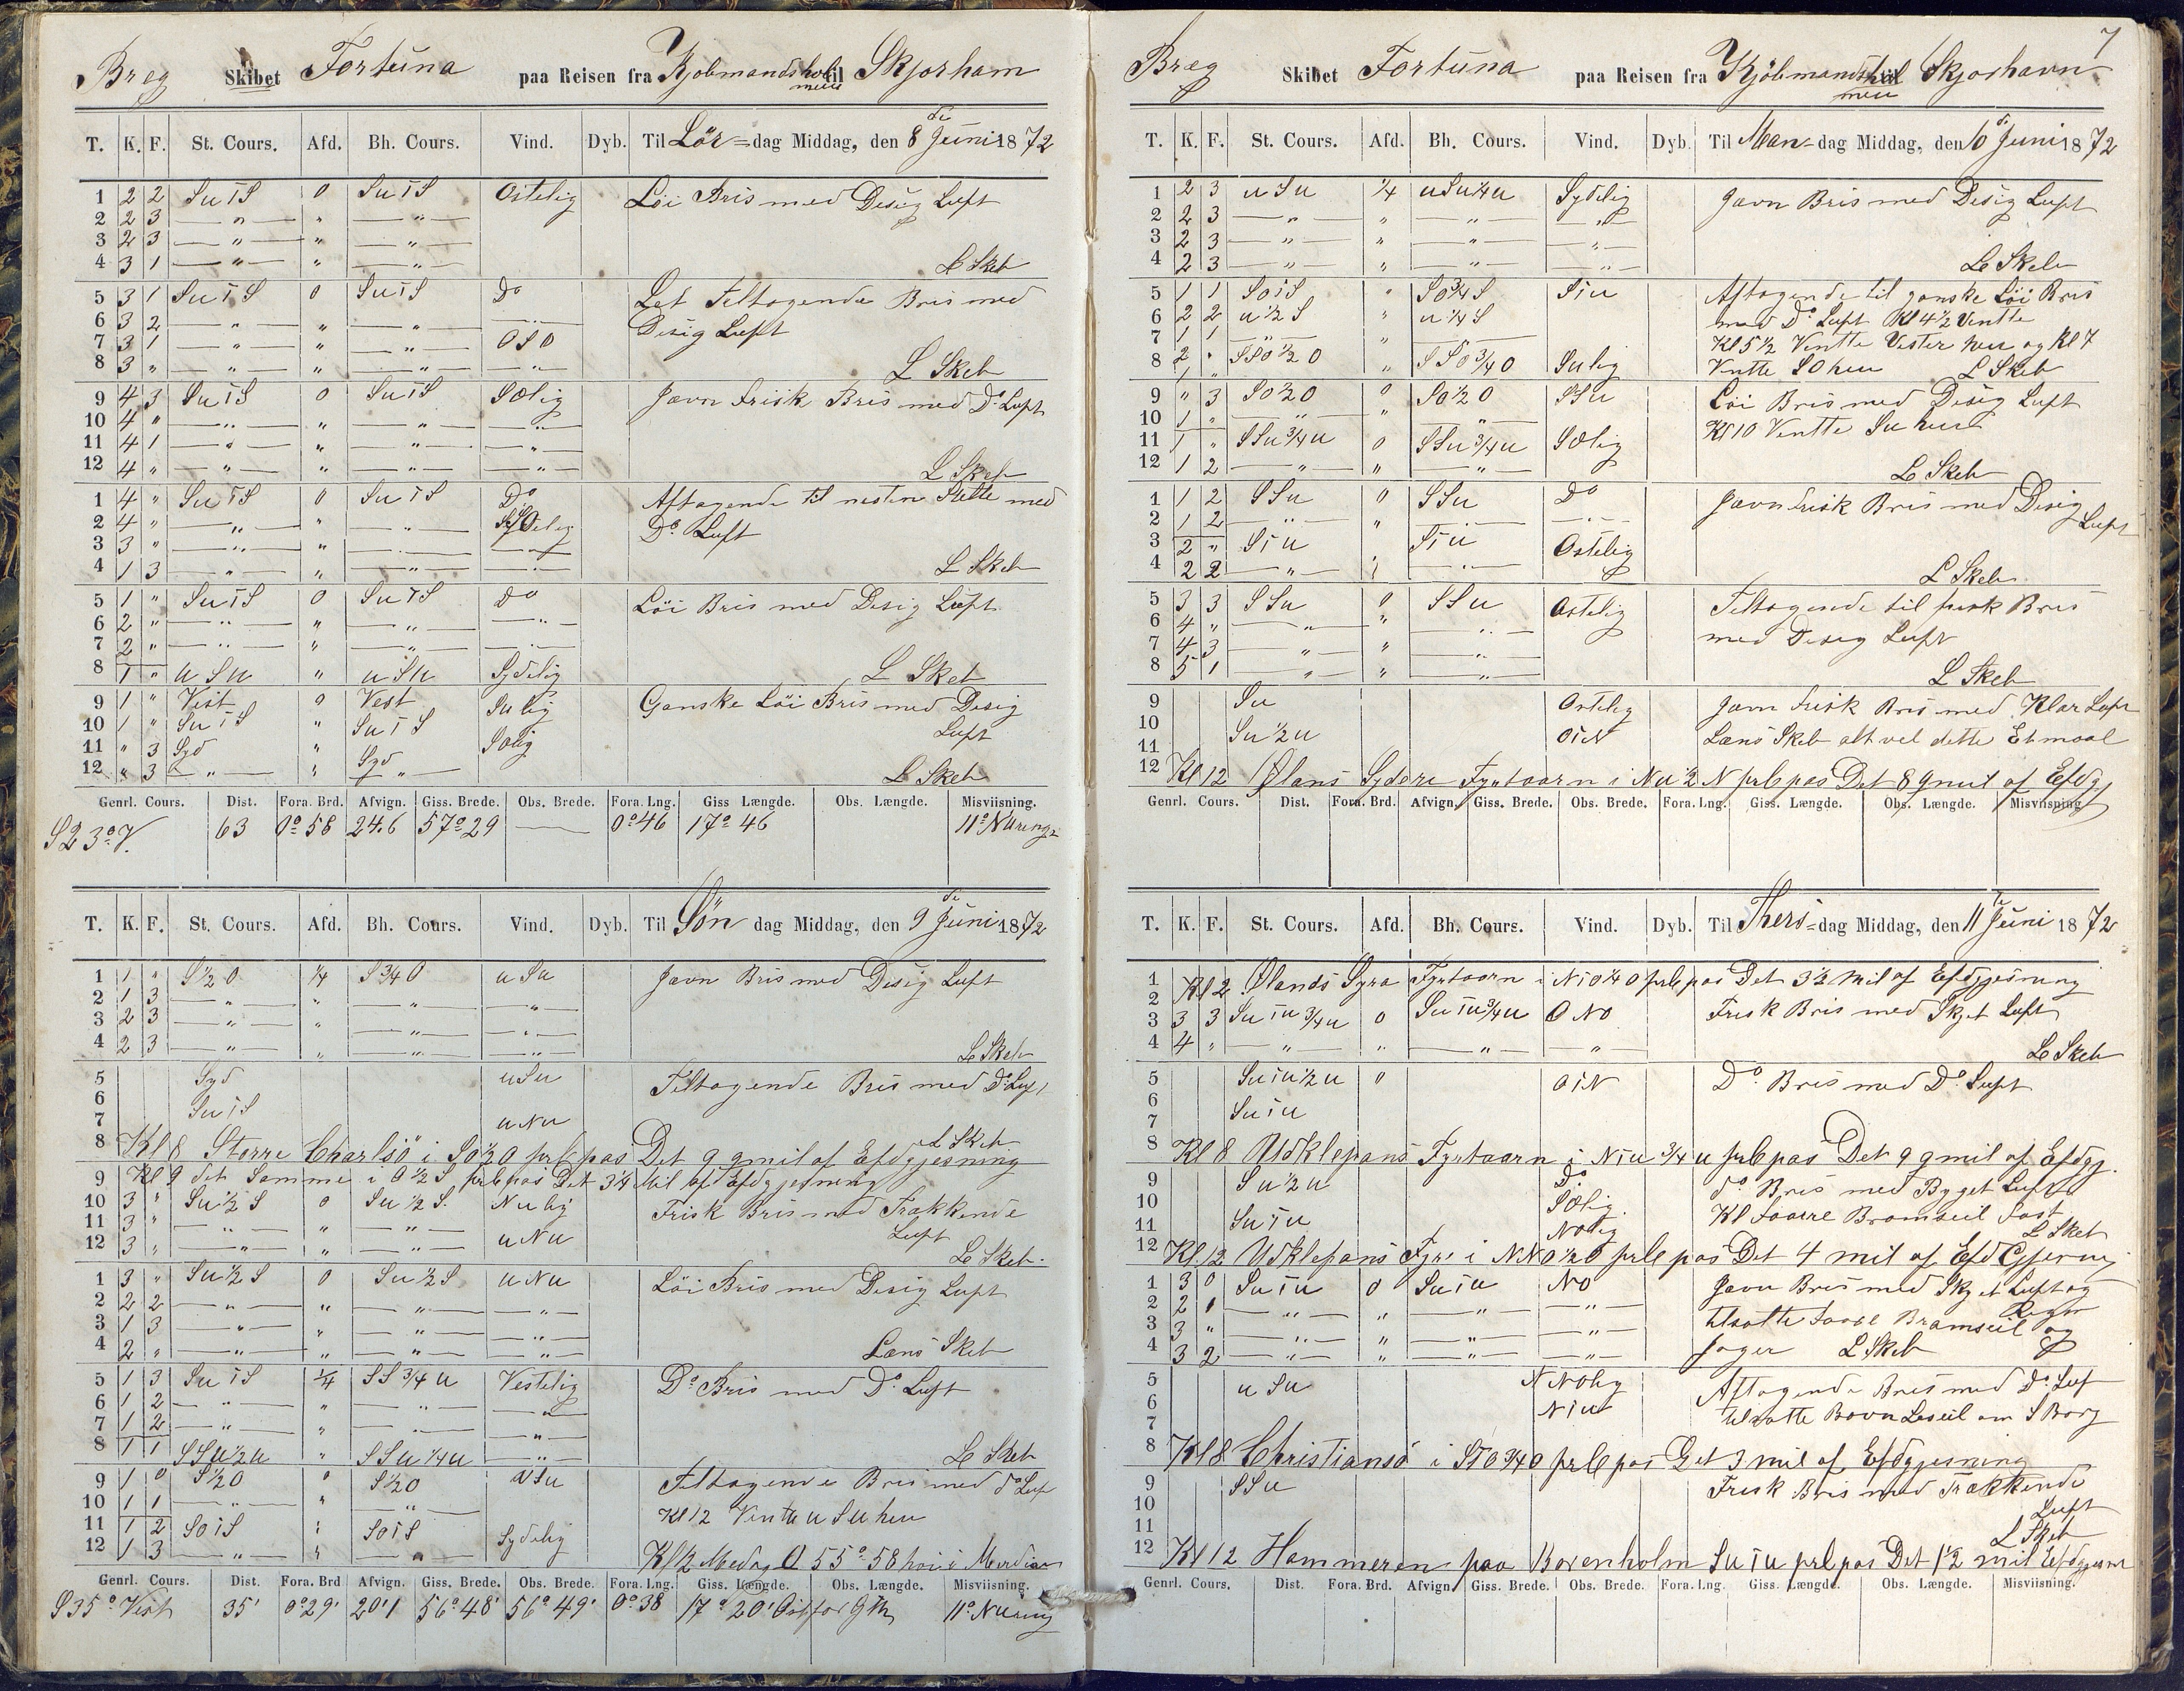 Breg Skibet Fortuna paa Reisen fra Kjobmandsholmen til Skjorham
T. K. F. St. Cours. Afd. Bh. Cours. Vind. Dyb. Til Lör=dag Middag, den 8 de Juni 1872
1 2 2 SuiS 0 SuiS Ostelig Löi Bris med Desig Luft
2 2 3 — " — " — " —
3 2 3 — " — " — " —
4 3 1 — " — " — " — L Skeb
5 3 1 SuiS 0 SuiS Do Let Teltagende Bris med
6 3 2 — " — " — " — — " — Desig Luft
7 3 1 — " — " — " — OSO
8 3 " — " — " — " — — " — L Skeb
9 4 3 SuiS 0 SuiS SOlig Javn Frisk Bris med Do Luft
10 4 " — " — " — " — — " —
11 4 1 — " — " — " — — " —
12 4 " — " — " — " — — " — L Skeb
1 4 " SuiS 0 SuiS Do Aftagende til nesten Stille med
2 4 " — " — " — " — Do Luft
3 3 " — " — " — " — — " —
4 1 3 — " — " — " — — " — L Skeb
5 1 " SuiS 0 SuiS Do Löi Bris med Desig Luft
6 2 " — " — " — " — — " —
7 2 " — " — " — " — — " —
8 1 " uSu " uSu Sydelig L Skeb
9 1 " Vest 0 Vest Sulig Ganske Löi Bris med Desig
10 1 " SuiS " SuiS Luft
11 " 3 Syd " Syd SOlig
12 " 3 — " — " — " — L Skeb
Genrl. Cours. Dist. Fora. Brd. Afvign. Giss. Brede. Obs. Brede. Fora. Lng. Giss Længde. Obs. Længde. Misviisning.
S 23° V. 63 0° 58 24.6 57° 29 — 0° 46 17° 46 11° Nuring
T. K. F. St. Cours. Afd. Bh. Cours. Vind. Dyb. Til Sön dag Middag, den 9 de Juni 1872
1 1 " S½O ¼ S¾O uSu Javn Bris med Desig Luft
2 1 3 — " — " — " — — " —
3 2 3 — " — " — " — — " —
4 2 3 — " — " — " — — " — L Skeb
5 Syd uSu Teltagende Bris med Do Luft
6 SuiS
7 uNu
8 Kl 8 Storre Charlsö i SO½O prlb pas Det 9 qmil af Efdgjesning L Skeb
9 Kl 9 det Samme i O½S prlb pas Det 3¼ Mil af Efdgjesning
10 3 " Su½S 0 Su½S. Nulig Frisk Bris med Trækkende
11 3 " — " — " — " — uNu Luft
12 3 " — " — " — " — L Skeb.
1 3 " Su½S 0 Su½S uNu Löi Bris med Desig Luft
2 2 2 — " — " — " — — " —
3 1 3 — " — " — " — — " —
4 2 " — " — " — " — — " — Læns Skeb
5 1 3 SuiS ¼ SS¾u Vestelig Do Bris med Do Luft
6 1 2 — " — " — " — — " —
7 1 2 — " — " — " — — " —
8 1 1 SSu½u " SSu¼u — " — L Skeb
9 1 0 S½O 0 S½O uSu Teltagende Bris med do Luf
10 1 1 — " — " — " — Kl 12 Vente uSu hen
11 1 2 SOiS " SOiS Sydelig
12 1 3 — " — " — " — Kl 12 Medag 55° 58 höi i Merdian
Genrl. Cours. Dist. Fora. Brd Afvign. Giss. Brede. Obs. Brede. Fora. Lng. Giss. Længde. Obs. Længde. Misviisning.
S 35° Vest 35' 0° 29' 20'1 56° 48' 56° 49' 0° 38 17° 20' Ost for G 11° Nuring
7
Breg Skibet Fortuna paa Reisen fra Kjöbmandsholmen til Skjorhavn
T. K. F. St. Cours. Afd. Bh. Cours. Vind. Dyb. Til Man-dag Middag, den 10 de Juni 1872
1 2 3 uSu ¼ uSu¼u Sydelig Javn Bris med Desig Luft
2 2 3 — " — " — " — — " —
3 2 3 — " — " — " — — " —
4 2 3 — " — " — " — — " — L Skeb
5 1 1 SOiS " SO¾S Siu Aftagende til ganske Löi Bris
6 2 2 u½S " u¼S med Do Luft Kl 4½ Ventte
7 1 1 — " — " Kl 5½ Ventte Vester hen og Kl 7
8 2 " SSO½O " SSO¾O Sulig Ventte SO hen L Skeb
9 " 3 SO½O 0 SO½O SSu Löi Bris med Desig Luft
10 1 " — " — " — " — Kl 10 Ventte Su hen
11 1 " SSu¾u 0 SSu¾u SOlig
12 1 2 — " — " — " — L Skeb
1 1 2 SSu 0 SSu Do Javn frisk Bris med Desig
2 1 2 — " — " — " — — " — Luft
3 2 " Siu Siu Ostelig
4 2 2 — " — " — " — L Skeb
5 3 3 SSu 0 SSu Ostelig Teltagende til frisk Bris
6 4 " — " — " — " — med Desig Luft
7 4 3 — " — " — " —
8 5 1 — " — " — " — L Skeb
9 Su Ostelig Javn frisk Bris med Klar Luft
10 Su½u OiN Læns Skeb alt vel dette Etmaal
11
12 Kl 12 Ølans Sydere Fyrtaarn i Nu½N prlb pas Det 8 qmil af Efdgj
Genrl. Cours. Dist. Fora. Brd. Afvign. Giss. Brede. Obs. Brede. Fora. Lng. Giss. Længde. Obs. Længde. Misvisning
T. K. F. St. Cours. Afd. Bh. Cours. Vind. Dyb. Til Thers=dag Middag, den 11 te Juni 1872
1
2 Kl 2 Ølands Syra Fyrtaarn i NiO¼O prlb pas Det 3½ Mil af Efdgjesning
3 3 3 Suiu¾u 0 Suiu¾u ONO Frisk Bris med Skyet Luft
4 4 " — " — " — " — — " — L Skeb
5 Suiu½u 0 OiN Do Bris med Do Luft
6 Suiu
7
8 Kl 8 Utdklepans Fyrtaarn i Niu¾u prlb pas Det 9 qmil af Efdgj.
9 Su½u Do do Bris med Byget Luft
10 SOlig. Kl Foare Bramseil Fast
11 Suiu NOlig L Skeb
12 Kl 12 Udklepans Fyr i NNO½O prlb pas Det 4 mil af Efd Gjesning
1 3 0 Suiu 0 Suiu NO Javn Bris med Skyet Luft og
2 2 1 — " — " — " — — " — Regn
3 3 " — " — " — " — — " — tilsatte Foare Bramseil og
4 3 2 — " — " — " — — " — Jager L Skeb
5 uSu NNOlig Aftagende Bris med Do Luf
6 Niu tilsatte Bovn Leseil om S Borg
7
8 Kl 8 Christiansö i SiO¾O prlb pas Det 3 mil af Efdgjesning
9 SSu Frisk Bris med Trækkende
10 Luft
11 L Skeb
12 Kl 12 Hammeren paa Borenholm Suiu prlb pas Det 1½ mil Efdgjesn
Genrl. Cours. Dist. Fora. Brd. Afvign. Giss. Brede. Obs. Brede. Fora. Lng. Giss. Længde. Obs. Længde. Misviisning.